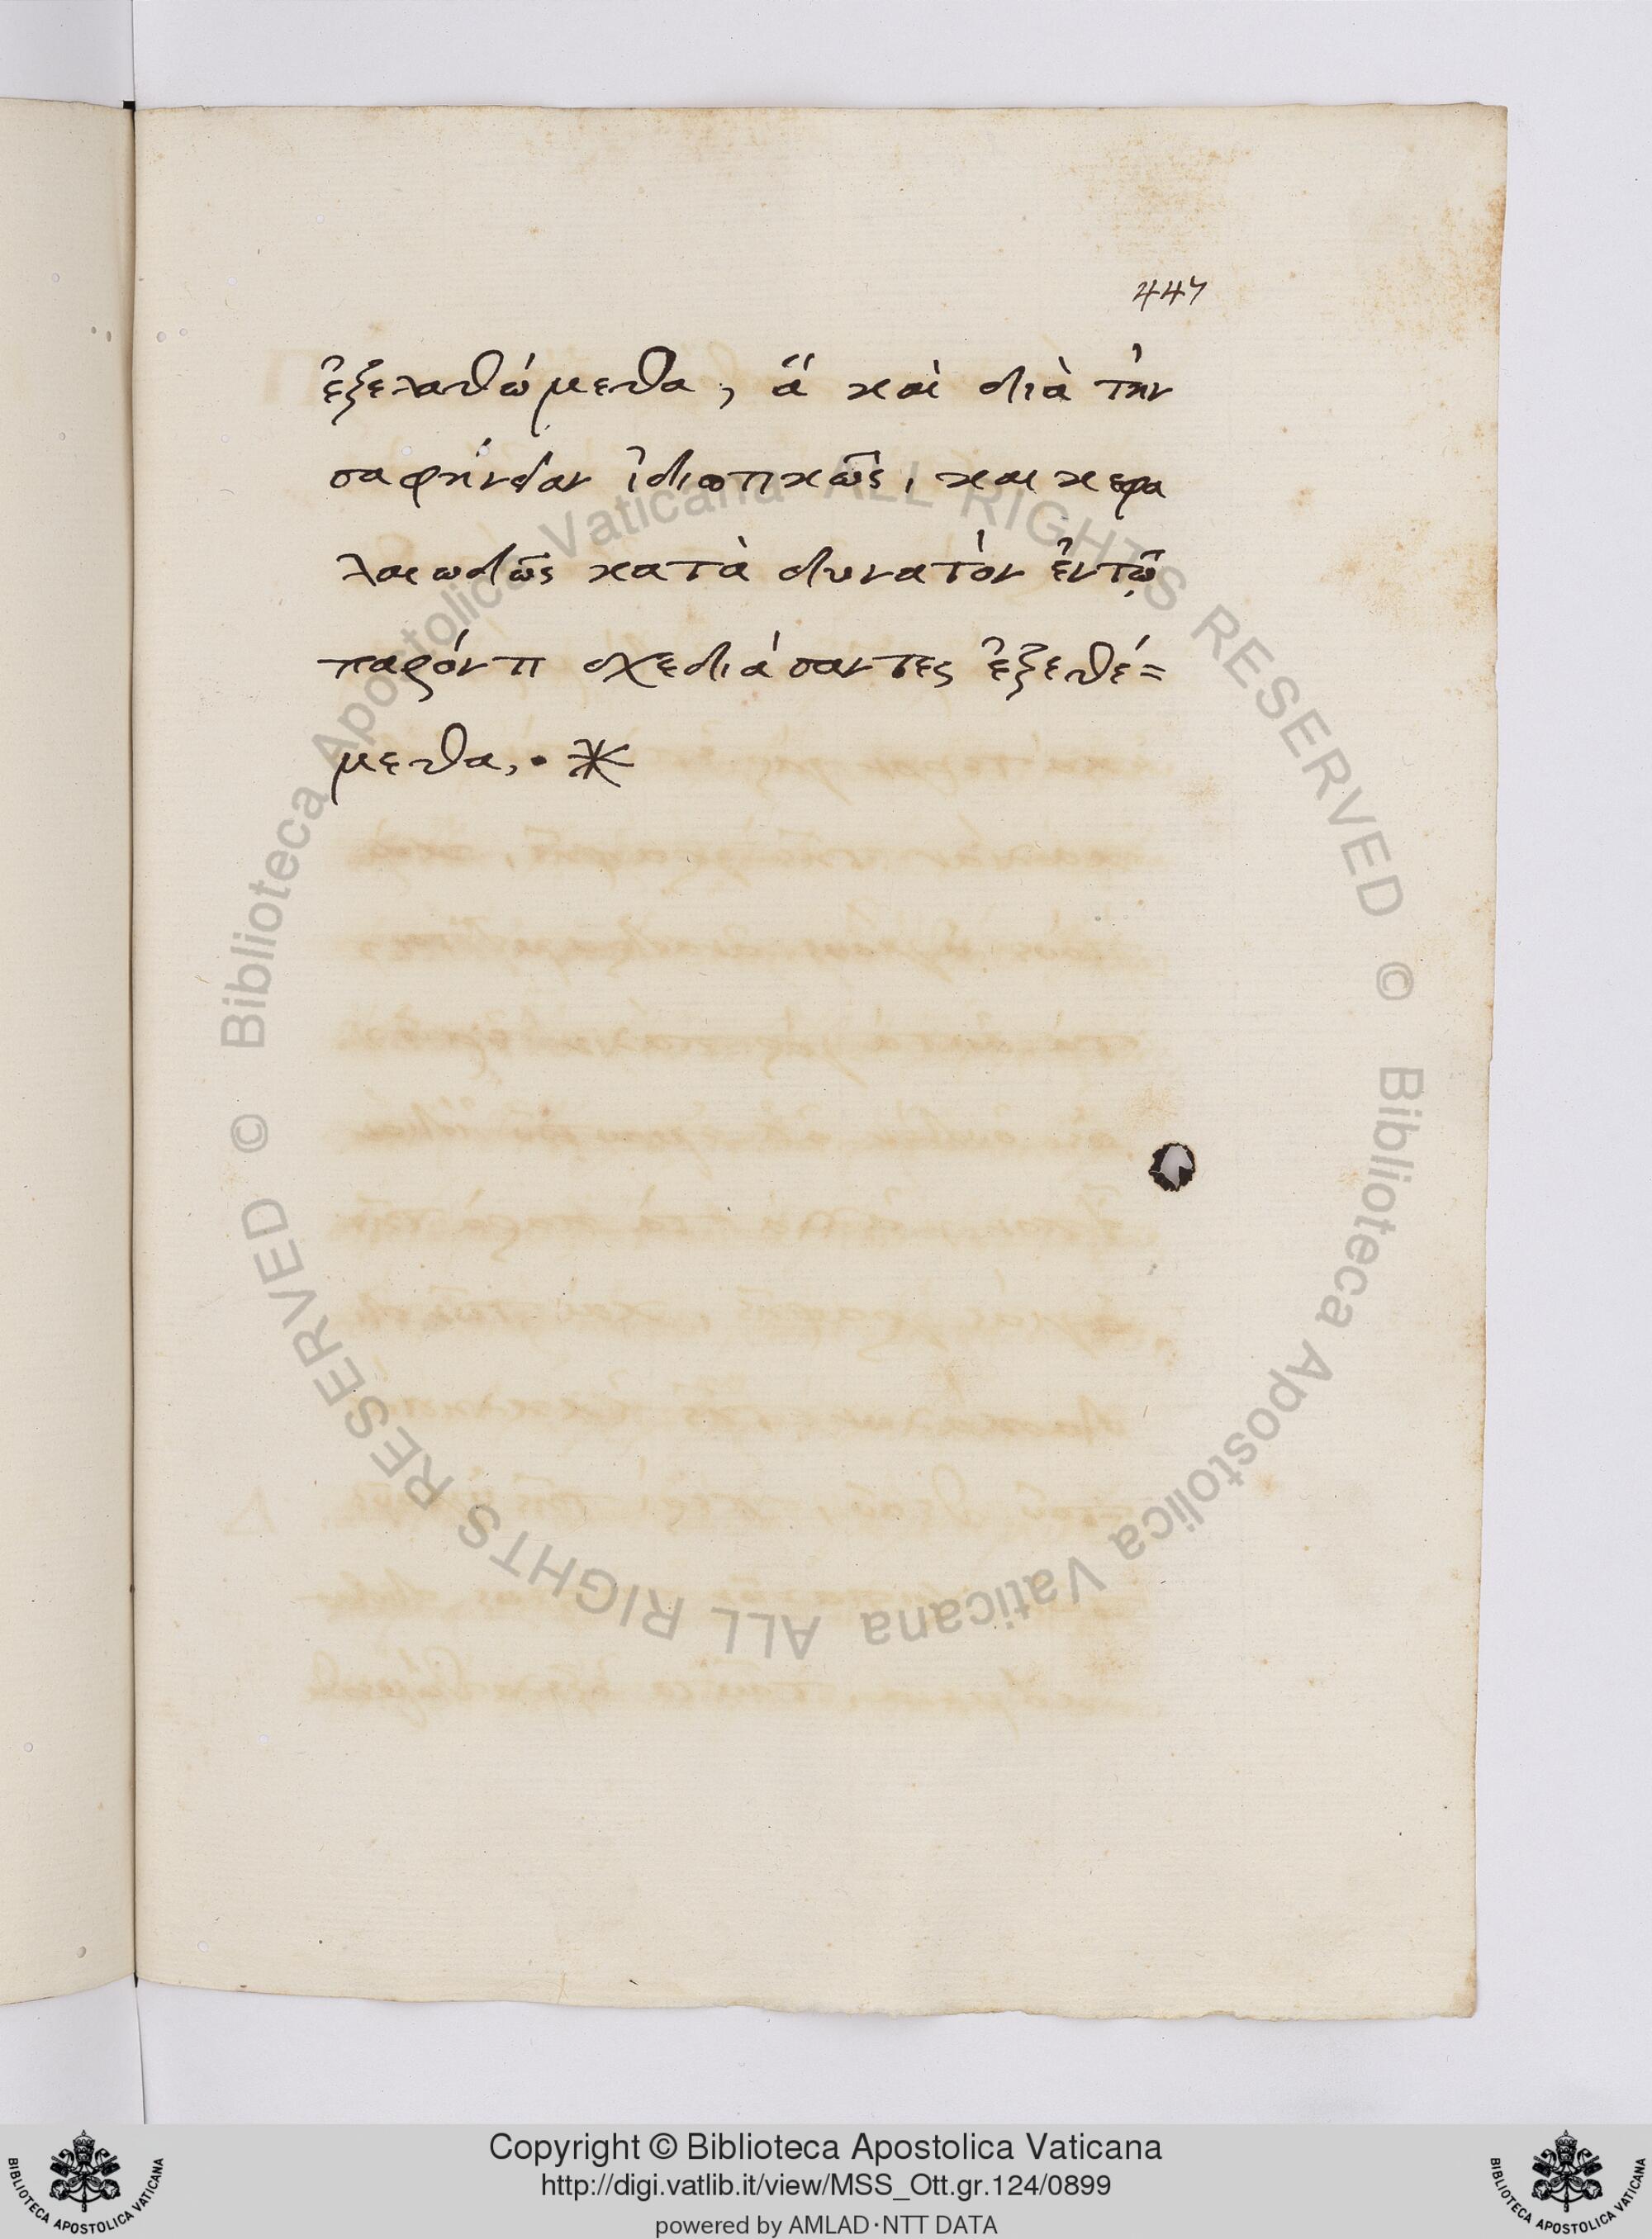 447
ἐξελαθώμεθα, ἃ καὶ διὰ τὴν
σαφήνειαν ἰδιωτικῶς, και κεφα
λαιωδῶς κατὰ δυνατὸν ἐντῷ
παρόντι σχεδιάσαντες ἐξεθέ=
μεθα,. *
© Biblioteca Apostolica Vaticana ALL RIGHTS RESERVED
© Biblioteca Apostolica Vaticana ALL RIGHTS RESERVED
Copyright © Biblioteca Apostolica Vaticana
http://digi.vatlib.it/view/MSS_Ott.gr.124/0899
powered by AMLAD·NTT DATA
BIBLIOTECA APOSTOLICA VATICANA
BIBLIOTECA APOSTOLICA VATICANA